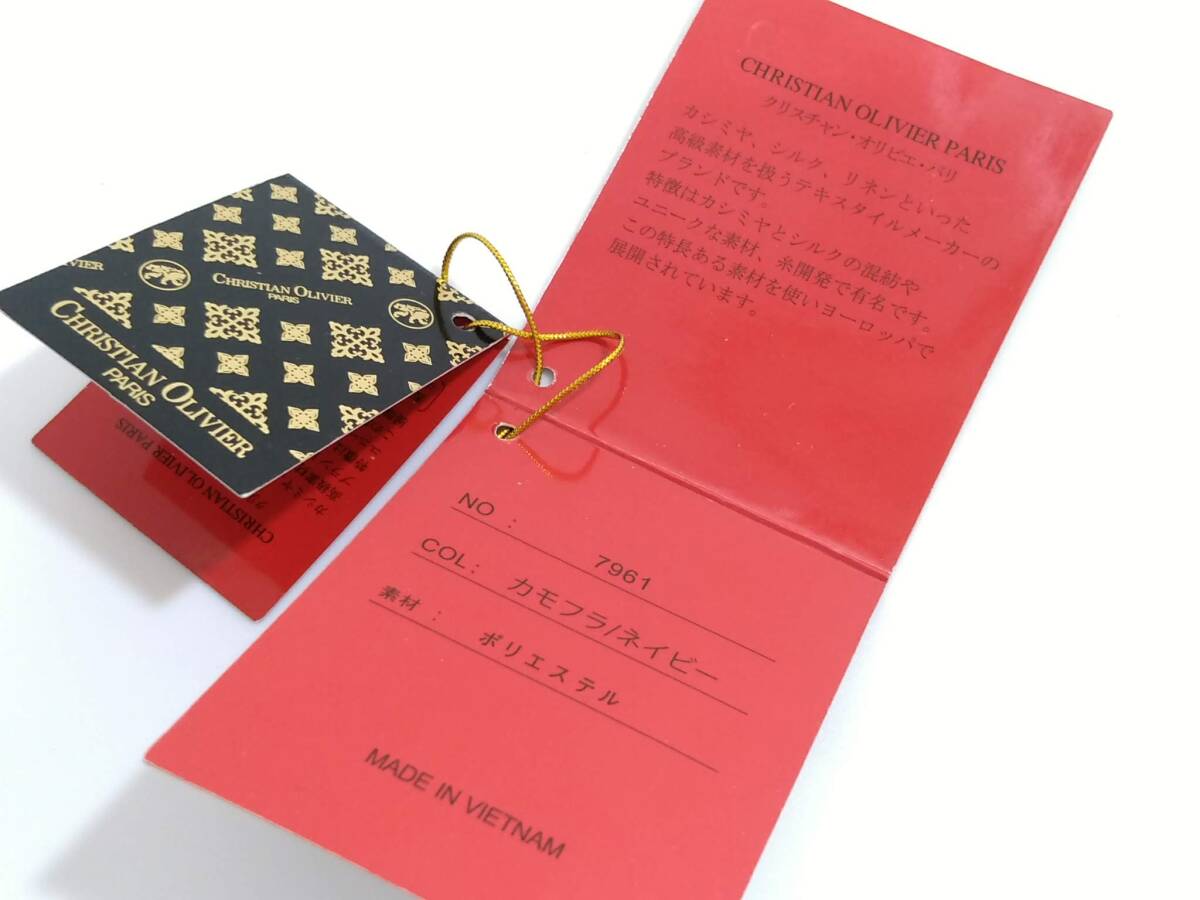 CHRISTIAN OLIVIER PARIS
クリスチャン・オリビエ・パリ
カシミヤ、シルク、リネンといった
高級素材を扱うテキスタイルメーカーの
ブランドです。
特徴はカシミヤとシルクの混紡や
ユニークな素材、糸開発で有名です。
この特長ある素材を使いヨーロッパで
展開されています。
NO : 7961
COL: カモフラ/ネイビー
素材 : ポリエステル
MADE IN VIETNAM
CHRISTIAN OLIVIER
PARIS
VIER
CHRISTIAN OLIVIER
PARIS
CHRISTIAN OLIVIER PARIS
カシミヤ
高級素材
ブラン